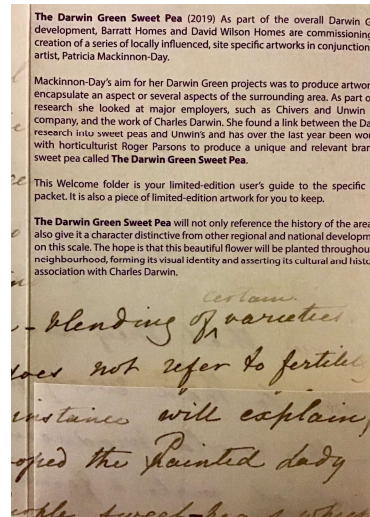 The Darwin Green Sweet Pea (2019) As part of the overall Darwin G
development, Barratt Homes and David Wilson Homes are commissioning
creation of a series of locally influenced, site specific artworks in conjunction
artist, Patricia Mackinnon-Day.
Mackinnon-Day's aim for her Darwin Green projects was to produce artwor
encapsulate an aspect or several aspects of the surrounding area. As part o
research she looked at major employers, such as Chivers and Unwin
company, and the work of Charles Darwin. She found a link between the Da
research into sweet peas and Unwin's and has over the last year been wor
with horticulturist Roger Parsons to produce a unique and relevant bran
sweet pea called The Darwin Green Sweet Pea.
This Welcome folder is your limited-edition user's guide to the specific
packet. It is also a piece of limited-edition artwork for you to keep.
The Darwin Green Sweet Pea will not only reference the history of the area
also give it a character distinctive from other regional and national developm
on this scale. The hope is that this beautiful flower will be planted throughou
neighbourhood, forming its visual identity and asserting its cultural and histo
association with Charles Darwin.
certain
- blending of varieties
does not refer to fertility
instance will explain,
oped the Painted lady
sweet-pea